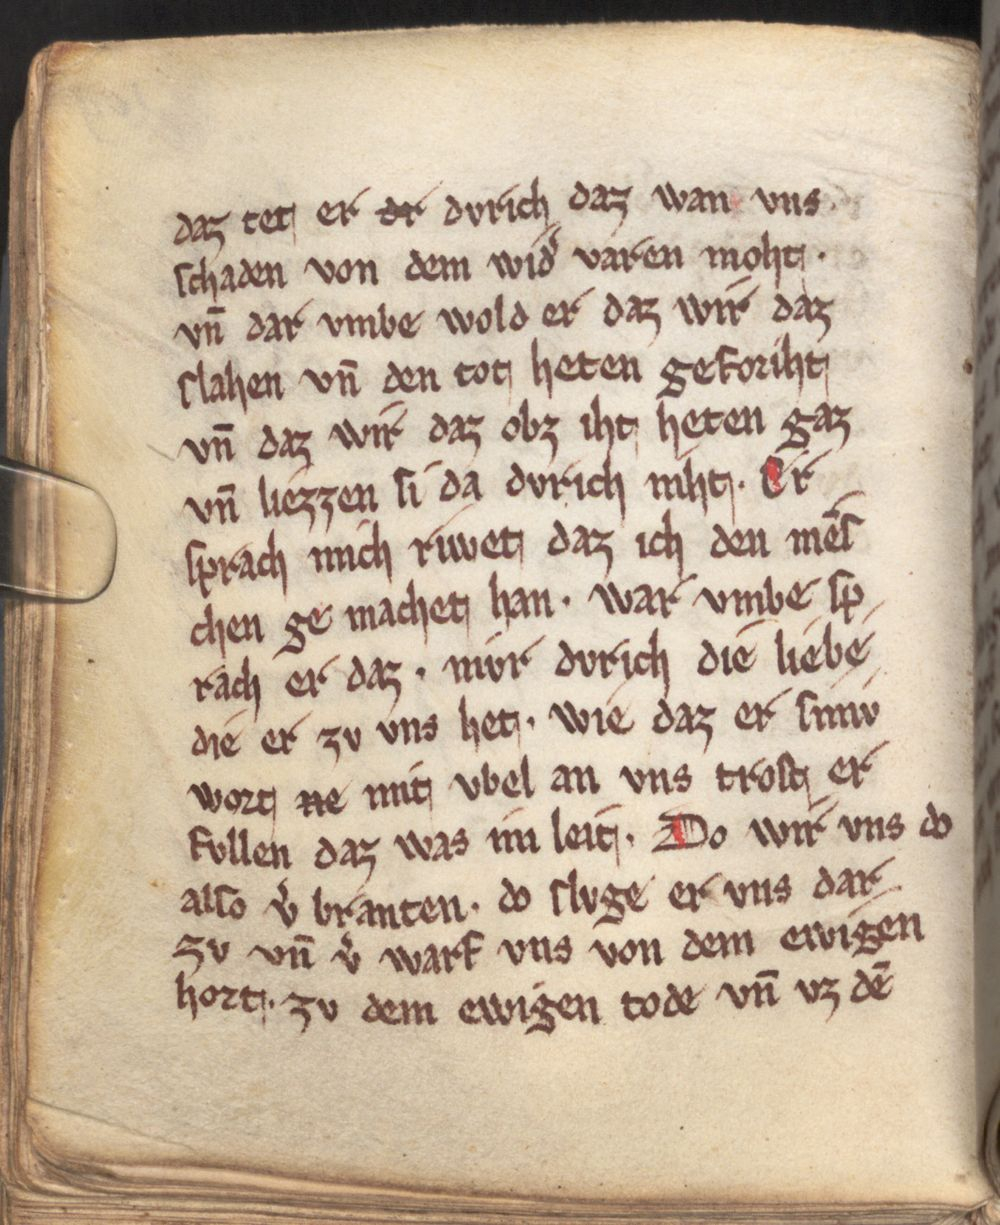 daz tet er dr dvrich daz wan vns
schaden von dem wid᷑ varen moht ·
vn̄ dar vmbe wold er daz wir daz
slahen vn̄ den tot heten geforiht
vn̄ daz wir daz obz iht heten gaz
vn̄ liezzen si da dvrich niht · Er
sprach mich riwet daz ich den mēs
chen ge machet han · war vmbe sp
rach er daz · nivr dvrich die liebe
die er zv vns het · wie daz er siniv
wort ne mit vbel an vns trost er
fvllen daz was im leit · Do wir vns do
also v᷑ branten · do slvge er vns dar
zv vn̄ v᷑ warf vns von dem ewigen
hort · zv dem ewigen tode vn̄ vz dē